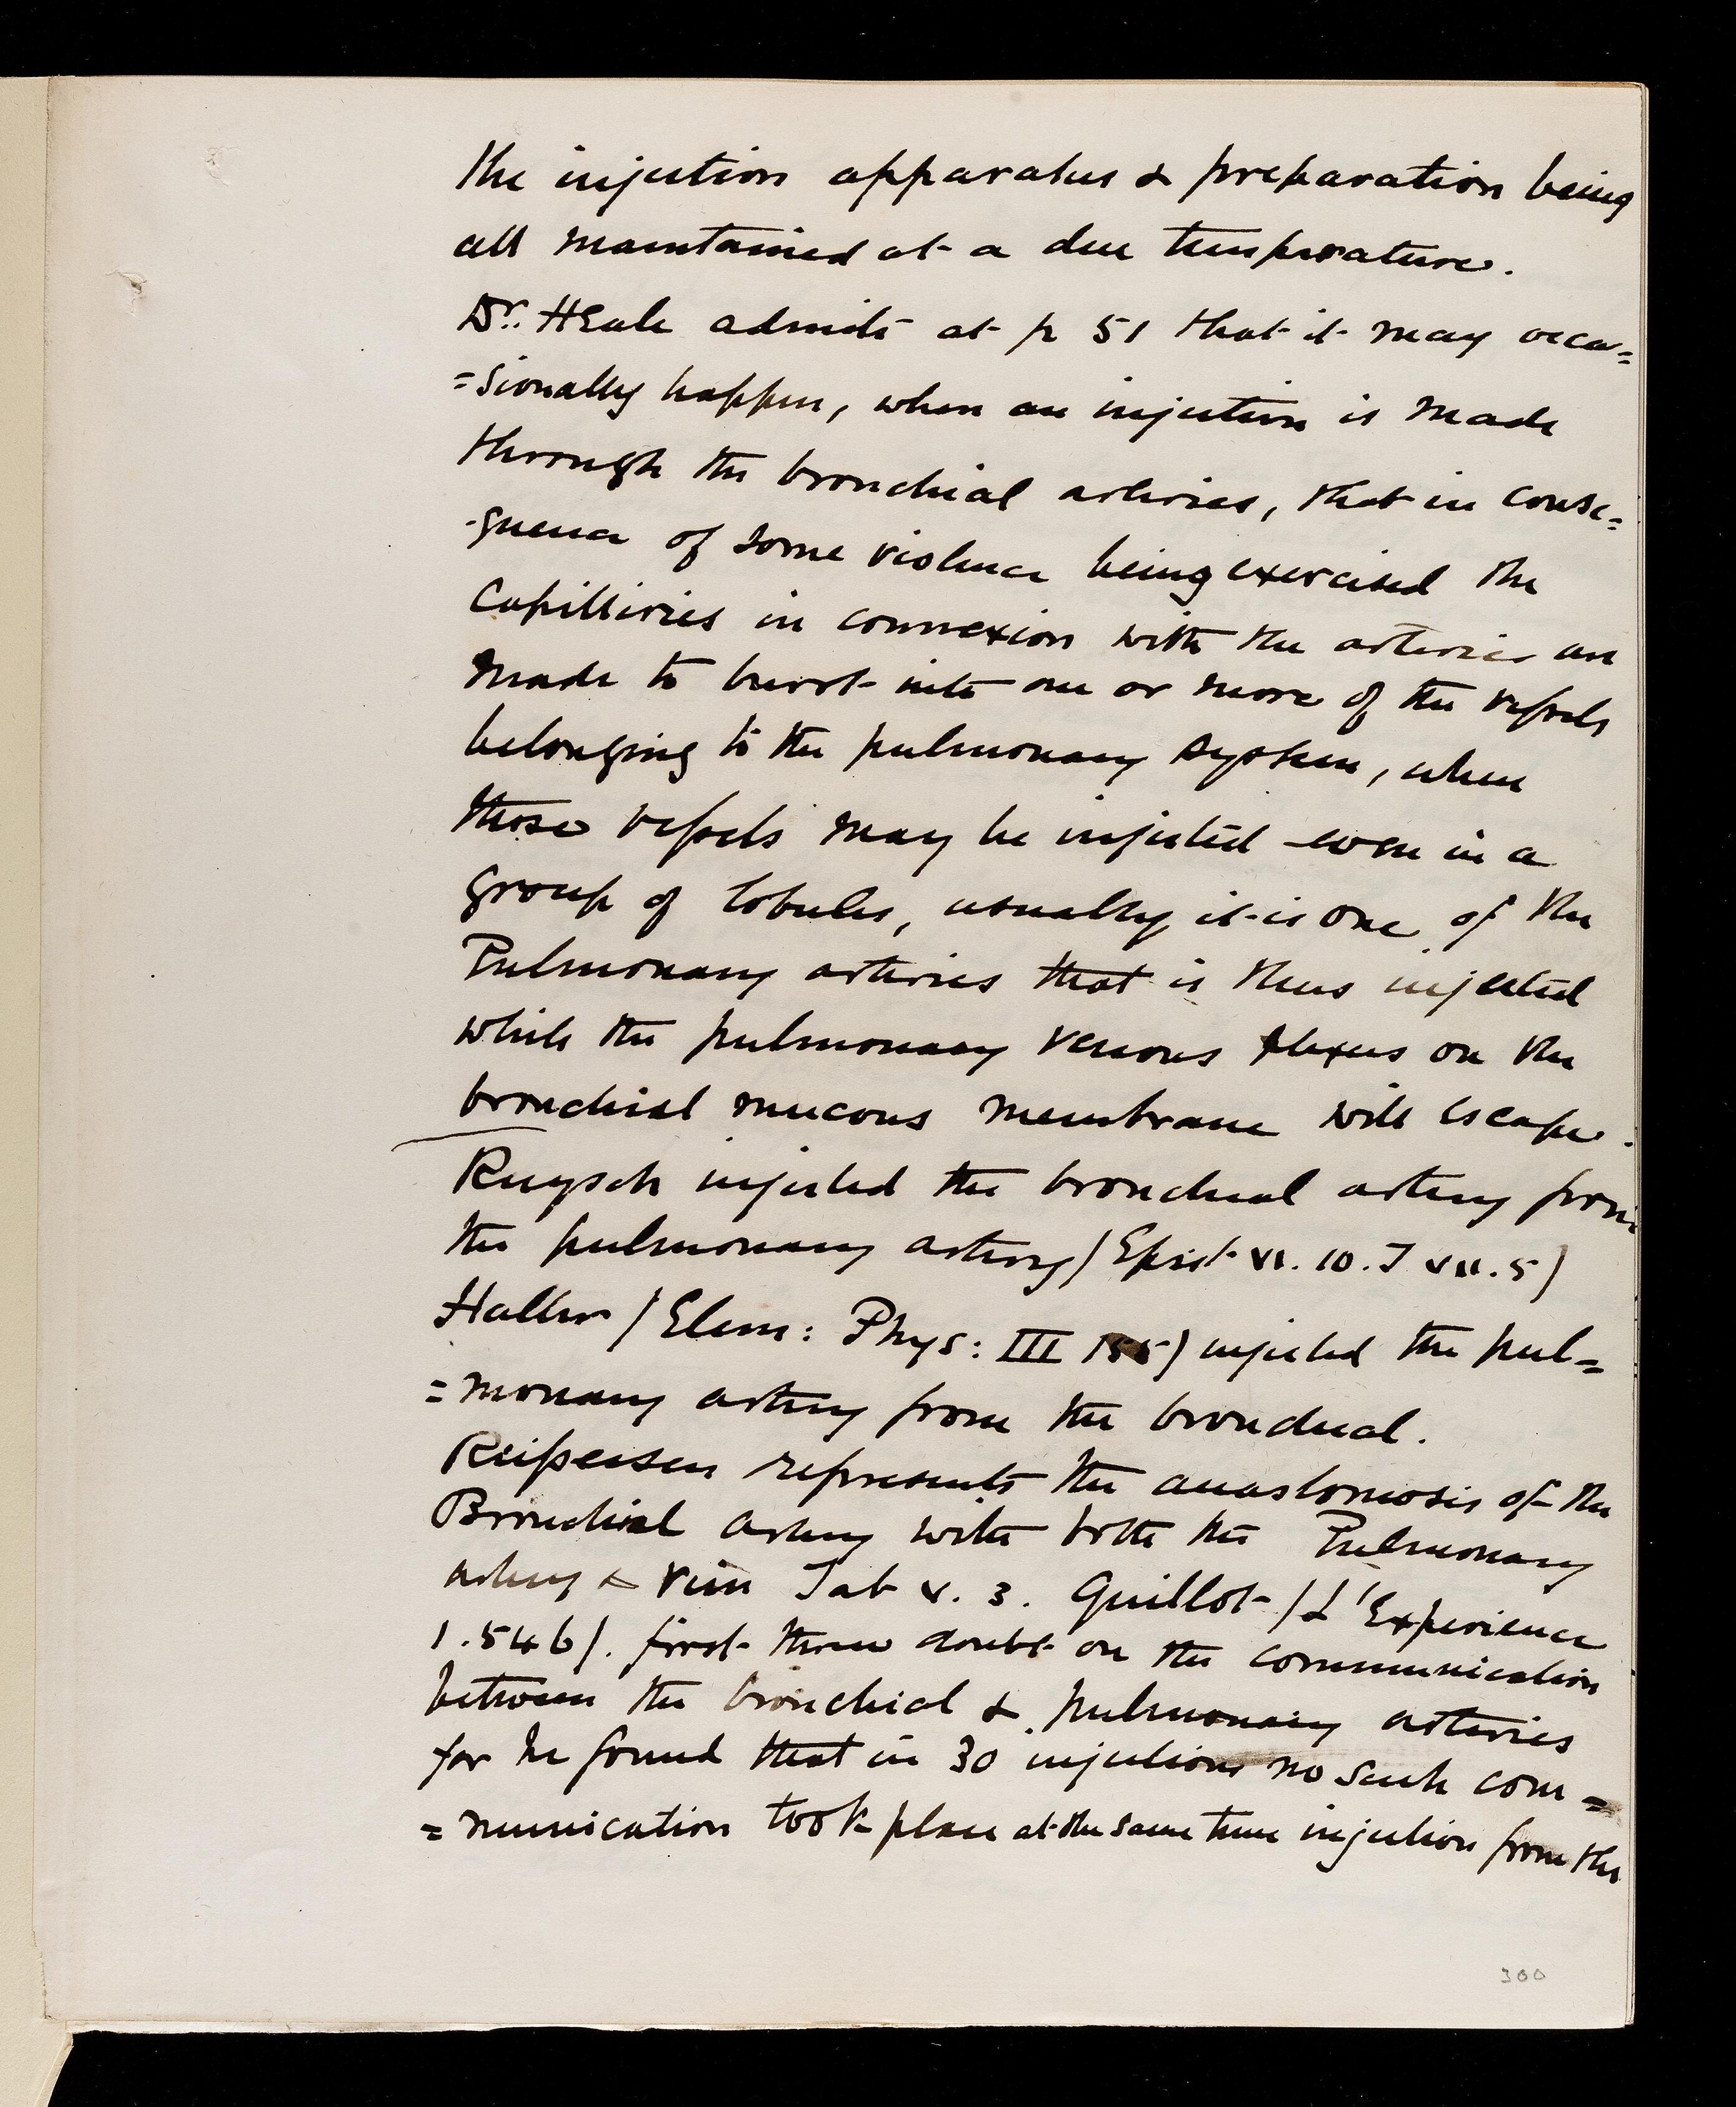 the injection apparatus & preparation being
all maintained at a due temperature.
Dr. Heale admits at p 51 that it may occa=
=sionally happen, when an injection is made
through the bronchial arteries, that in conse=
-quence of some violence being exercised the
Capilliries in connexion with the arteries are
made to burst into one or more of the vessels
belonging to the pulmonary system, when
those vessels may be injected even in a
group of lobules, usually it is one of the
Pulmonary arteries that is thus injected
while the pulmonary venous plexus on the
bronchial mucous membrane will escape.
Ruysch injected the bronchial artery from
the pulmonary artery (Epist VI. 10. T VII. 5)
Haller (Elem: Phys: III 155) injected the pul=
=monary artery from the bronchial.
Reisseisen represents the anastomosis of the
Bronchial artery with both the Pulmonary
artery & vein Tab V. 3. Guillot (L'Experience
1.546). first threw doubt on the communication
between the bronchial & pulmonary arteries
for he found that in 30 injections no such com=
=munication took place at the same time injection from the
300